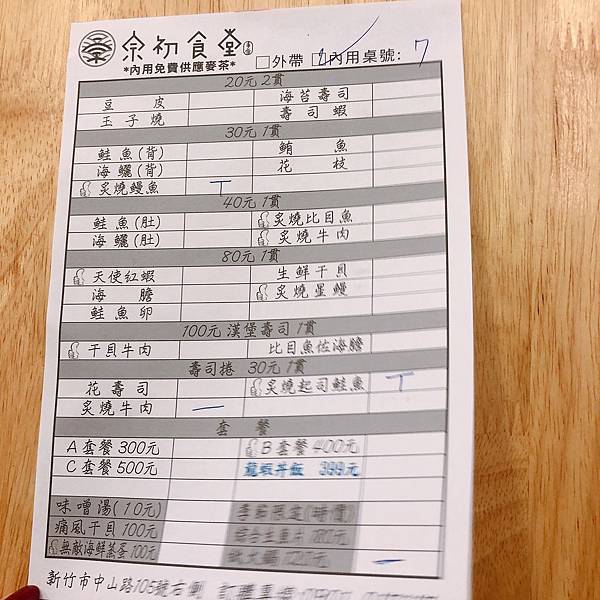 宗初食堂
*內用免費供應麥茶* □外帶 □內用桌號: 7
20元 2貫
豆皮 海苔壽司
玉子燒 壽司蝦
30元 1貫
鮭魚(背) 鮪魚
海鱺(背) 花枝
炙燒鰻魚 丅
40元 1貫
鮭魚(肚) 炙燒比目魚
海鱺(肚) 炙燒牛肉
80元 1貫
天使紅蝦 生鮮干貝
海膽 炙燒星鰻
鮭魚卵
100元 漢堡壽司 1貫
干貝牛肉 比目魚佐海膽
壽司捲 30元 1貫
花壽司 炙燒起司鮭魚 丅
炙燒牛肉 一
套餐
A套餐 300元 B套餐 400元
C套餐 500元 龍蝦丼飯 399元
味噌湯(10元) 季節限定(時價)
痛風干貝 100元 綜合生魚片
無敵海鮮蒸蛋 100元 一
新竹市中山路105號右側 訂購專線: